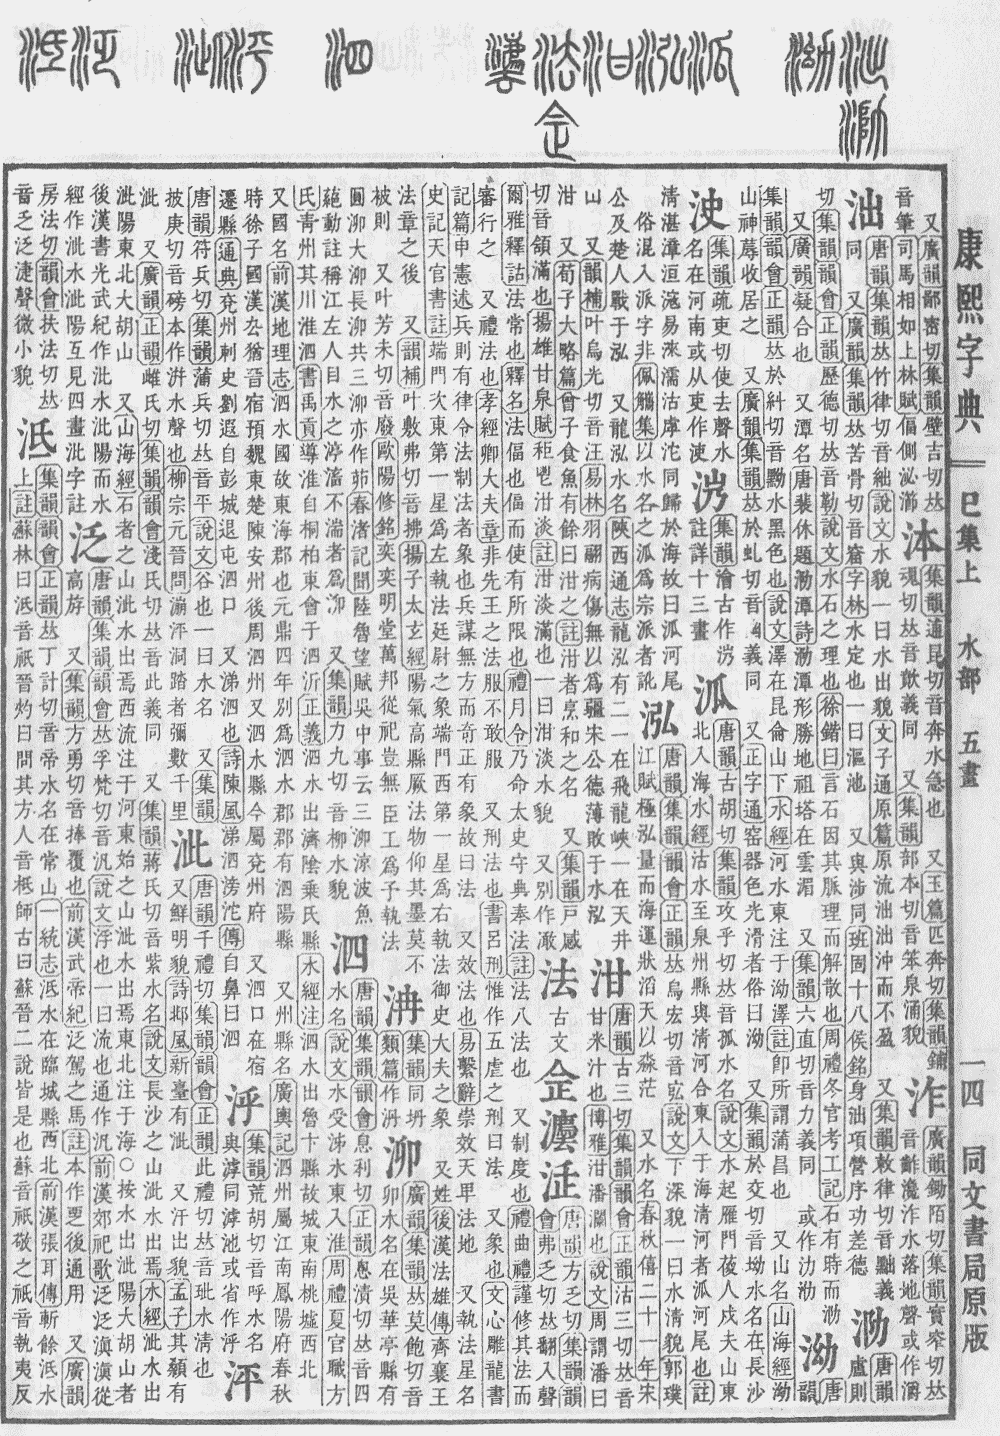 康熙字典
巳集上 水部 五畫
一四 同文書局原版
又廣韻鄙密切集韻壁吉切𠀤
音筆司馬相如上林賦偪側泌㴽
泍
集韻逋昆切音奔水急也 又玉篇匹奔切集韻鋪
魂切𠀤音歕義同 又集韻部本切音笨泉涌貌
泎
廣韻鋤陌切集韻實窄切𠀤
音齰瀺泎水落地聲或作㵶
泏
唐韻集韻𠀤竹律切音絀說文水貌一曰水出貌文子通原篇原流泏泏沖而不盈 又集韻敕律切音黜義
同 又廣韻集韻𠀤苦骨切音窟字林水定也一曰漚池 又與涉同班固十八侯銘身泏項營序功差德
泐
唐韻盧則
切集韻韻會正韻歷德切𠀤音勒說文水石之理也徐鍇曰言石因其脈理而解散也周禮冬官考工記石有時而泐
又廣韻凝合也 又潭名唐裴休題泐潭詩泐潭形勝地祖塔在雲湄 又集韻六直切音力義同 或作氻泐
泑
唐韻
集韻韻會正韻𠀤於糾切音黝水黑色也說文澤在昆侖山下水經河水東注于泑澤註卽所謂蒲昌也 又山名山海經泑
山神蓐收居之 又廣韻集韻𠀤於虬切音 義同 又正字通窑器色光滑者俗曰泑 又集韻於交切音坳水名在長沙
集韻疏吏切使去聲水
名在河南或从吏作
集韻澮古作
註詳十三畫
泒
唐韻古胡切集韻攻乎切𠀤音孤水名說文水起雁門葰人戍夫山東
北入海水經沽水至泉州縣與淸河合東入于海淸河者泒河尾也註
淸湛漳洹㴲易淶濡沽虖沱同歸於海故曰泒河尾
俗混入派字非佩觿集以水名之泒爲宗派者訛
泓
唐韻集韻韻會正韻𠀤烏宏切音宖說文下深貌一曰水淸貌郭璞
江賦極泓量而海運狀滔天以淼茫 又水名春秋僖二十一年宋
公及楚人戰于泓 又龍泓水名陝西通志龍泓有二一在飛龍峽一在天井
山 又韻補叶烏光切音汪易林羽翮病傷無以爲疆宋公德薄敗于水泓
泔
唐韻古三切集韻韻會正韻沽三切𠀤音
甘米汁也博雅泔潘瀾也說文周謂潘曰
泔 又荀子大略篇曾子食魚有餘曰泔之註泔者烹和之名 又集韻戸感
切音頷滿也揚雄甘泉賦秬鬯泔淡註泔淡滿也一曰泔淡水貌 又別作澉
法
古文
佱灋㳒
唐韻方乏切集韻韻
會弗乏切𠀤翻入聲
爾雅釋詁法常也釋名法偪也偪而使有所限也禮月令乃命太史守典奉法註法八法也 又制度也禮曲禮謹修其法而
審行之 又禮法也孝經卿大夫章非先王之法服不敢服 又刑法也書呂刑惟作五虐之刑曰法 又象也文心雕龍書
記篇申憲述兵則有律令法制法者象也兵謀無方而奇正有象故曰法 又效法也易繫辭崇效天𤰞法地 又執法星名
史記天官書註端門次東第一星爲左執法廷尉之象端門西第一星爲右執法御史大夫之象 又姓後漢法雄傳齊襄王
法章之後 又韻補叶敷弗切音拂揚子太玄經陽氣高縣厥法物仰其墨莫不
被則 又叶芳未切音廢歐陽修銘奕奕明堂萬邦從祀豈無臣工爲予執法
集韻同坍
類篇作
泖
廣韻集韻𠀤莫飽切音
卯水名在吳華亭縣有
圓泖大泖長泖共三泖亦作茆春渚記聞陸魯望賦吳中事云三泖涼波魚
蕝動註稱江左人目水之渟滀不湍者爲泖 又集韻力九切音柳水貌
泗
唐韻集韻韻會息利切正韻恩漬切𠀤音四
水名說文水受泲水東入淮周禮夏官職方
氏靑州其川淮泗書禹貢導淮自桐柏東會于泗沂正義泗水出濟陰乗氏縣水經注泗水出魯卞縣故城東南桃墟西北
又國名前漢地理志泗水國故東海郡也元鼎四年別爲泗水郡郡有泗陽縣 又州縣名廣輿記泗州屬江南鳳陽府春秋
時徐子國漢厹猶晉宿預魏東楚陳安州後周泗州又泗水縣今屬兗州府 又泗口在宿
遷縣通典兗州刺史劉遐自彭城退屯泗口 又涕泗也詩陳風涕泗滂沱傳自鼻曰泗
泘
集韻荒胡切音呼水名
與滹同滹池或省作泘
泙
唐韻符兵切集韻蒲兵切𠀤音平說文谷也一曰水名 又集韻
披庚切音磅本作泙水聲也柳宗元晉問漰泙洞踏者彌數千里
泚
唐韻千禮切集韻韻會正韻此禮切𠀤音玼水淸也
又鮮明貌詩邶風新臺有泚 又汗出貌孟子其顙有
泚 又廣韻正韻雌氏切集韻韻會淺氏切𠀤音此義同 又集韻蔣氏切音紫水名說文長沙之山泚水出焉水經泚水出
泚陽東北大胡山 又山海經石者之山泚水出焉西流注于河東始之山泚水出焉東北注于海○按水出泚陽大胡山者
後漢書光武紀作沘水沘陽而水
經作泚水泚陽互見四畫沘字註
泛
唐韻集韻韻會𠀤孚梵切音汎說文浮也一曰流也通作汎前漢郊祀歌泛泛滇滇從
高斿 又集韻方勇切音捧覆也前漢武帝紀泛駕之馬註本作覂後通用 又廣韻
房法切韻會扶法切𠀤
音乏泛淁聲微小貌
泜
集韻韻會正韻𠀤丁計切音帝水名在常山一統志泜水在臨城縣西北前漢張耳傳斬餘泜水
上註蘇林曰泜音祇晉灼曰問其方人音柢師古曰蘇晉二說皆是也蘇音祇敬之祇音執夷反